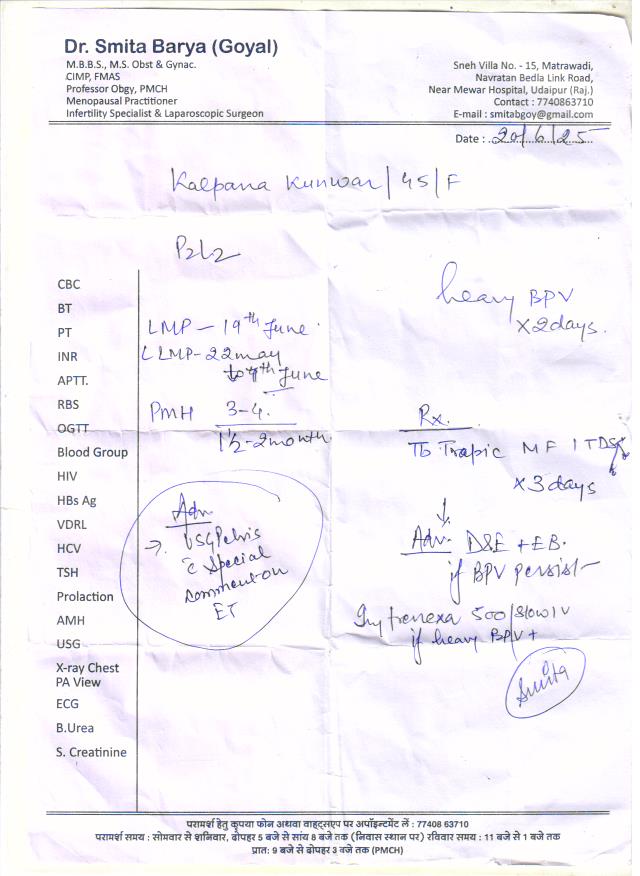 Dr. Smita Barya (Goyal)
M.B.B.S., M.S. Obst & Gynac.
CIMP, FMAS
Professor Obgy, PMCH
Menopausal Practitioner
Infertility Specialist & Laparoscopic Surgeon
Sneh Villa No. - 15, Matrawadi,
Navratan Bedla Link Road,
Near Mewar Hospital, Udaipur (Raj.)
Contact : 7740863710
E-mail : smitabgoy@gmail.com
Date : 20/6/25
Kalpana Kunwar/45/F
P2L2
heavy BPV
x2days.
CBC
BT
PT
INR
APTT.
RBS
OGTT
Blood Group
HIV
HBs Ag
VDRL
HCV
TSH
Prolaction
AMH
USG
X-ray Chest
PA View
ECG
B.Urea
S. Creatinine
LMP - 19th June
LLMP - 22 may
to 7th June
PMH 3-4.
1½-2month
Adv
→ USG Pelvis
c̄ Special
comment on
ET
Rx.
Tb Trapic MF 1 TDS
x3days
↓
Adv. D&E + EB.
if BPV persist
Inj trenexa 500/slow IV
if heavy BPV +
Smita
परामर्श हेतु कृपया फोन अथवा वाहट्सएप पर अपॉइन्टमेंट लें : 77408 63710
परामर्श समय : सोमवार से शनिवार, दोपहर 5 बजे से सांय 8 बजे तक (निवास स्थान पर) रविवार समय : 11 बजे से 1 बजे तक
प्रात: 9 बजे से दोपहर 3 बजे तक (PMCH)